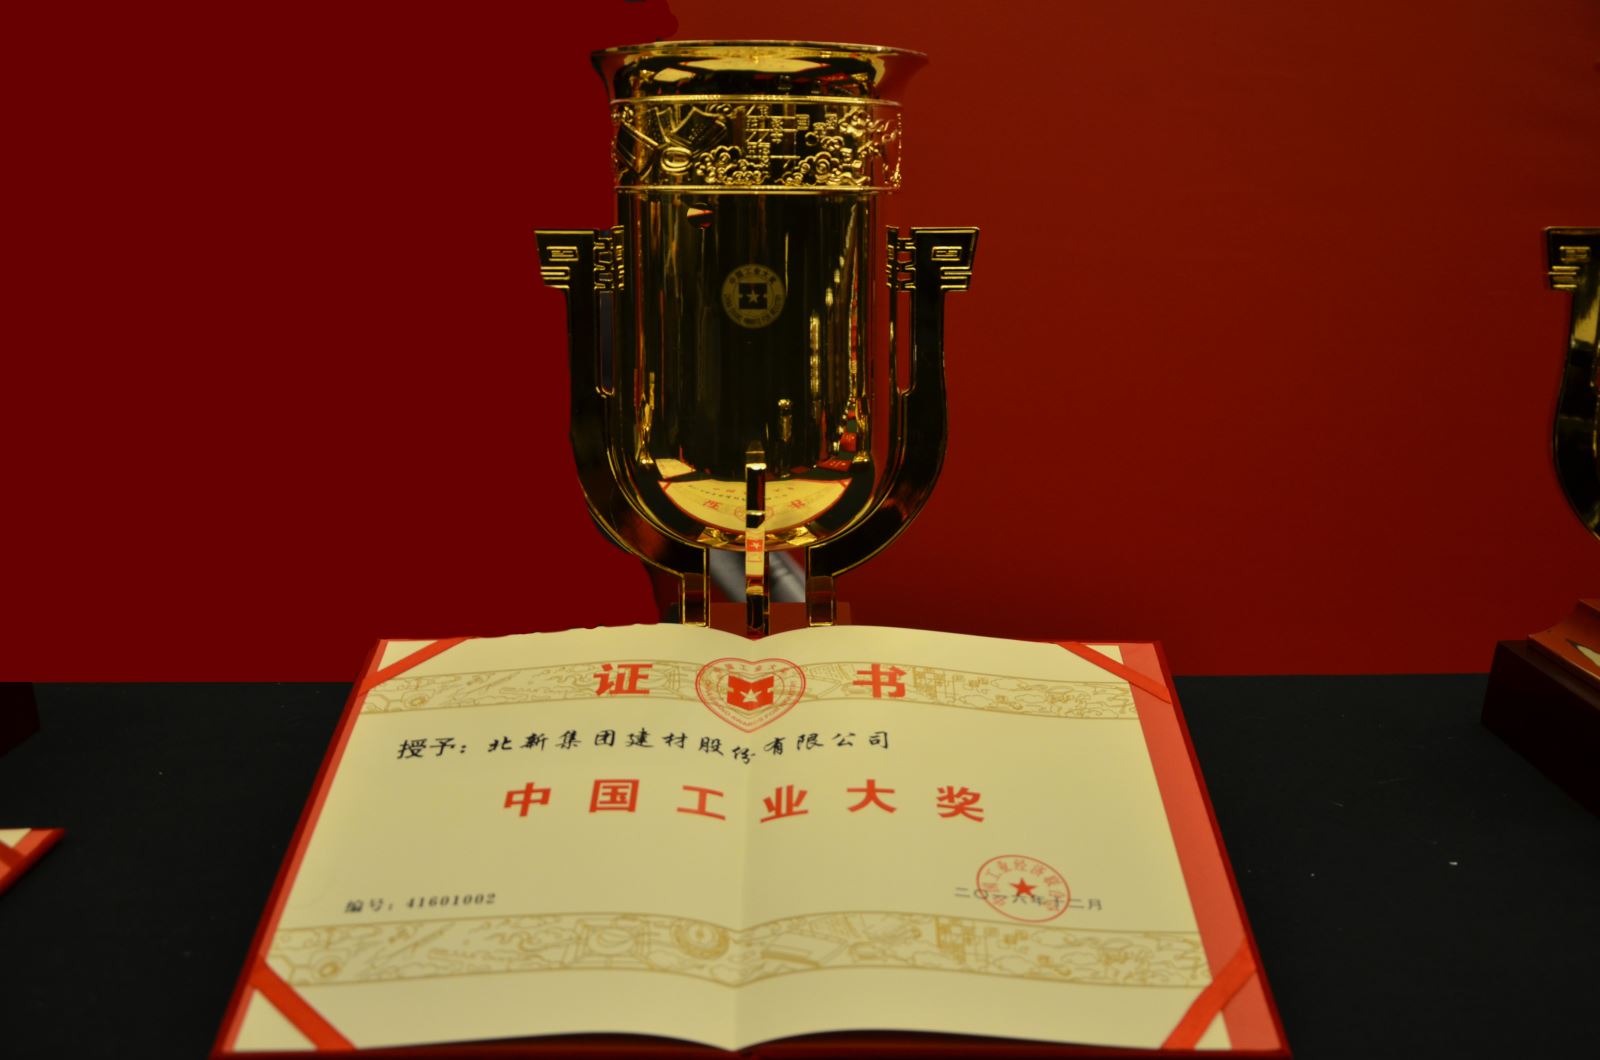 中国工业大奖
证 书
授予：北新集团建材股份有限公司
中国工业大奖
编号：41601002
二〇一六年十二月